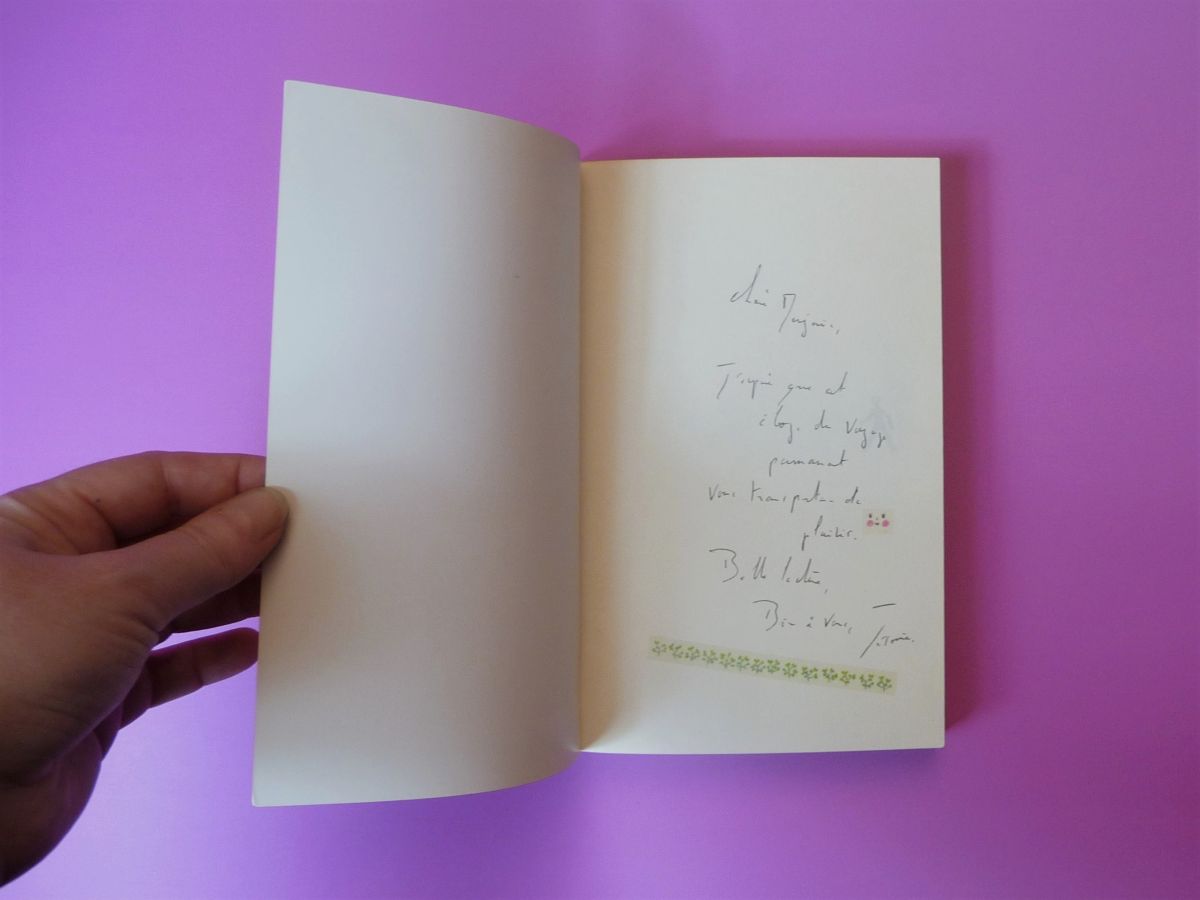 Chère Marjorie,
J'espère que cet
éloge du voyage
permanent
vous transportera de
plaisir.
Belle lecture,
Bien à vous,